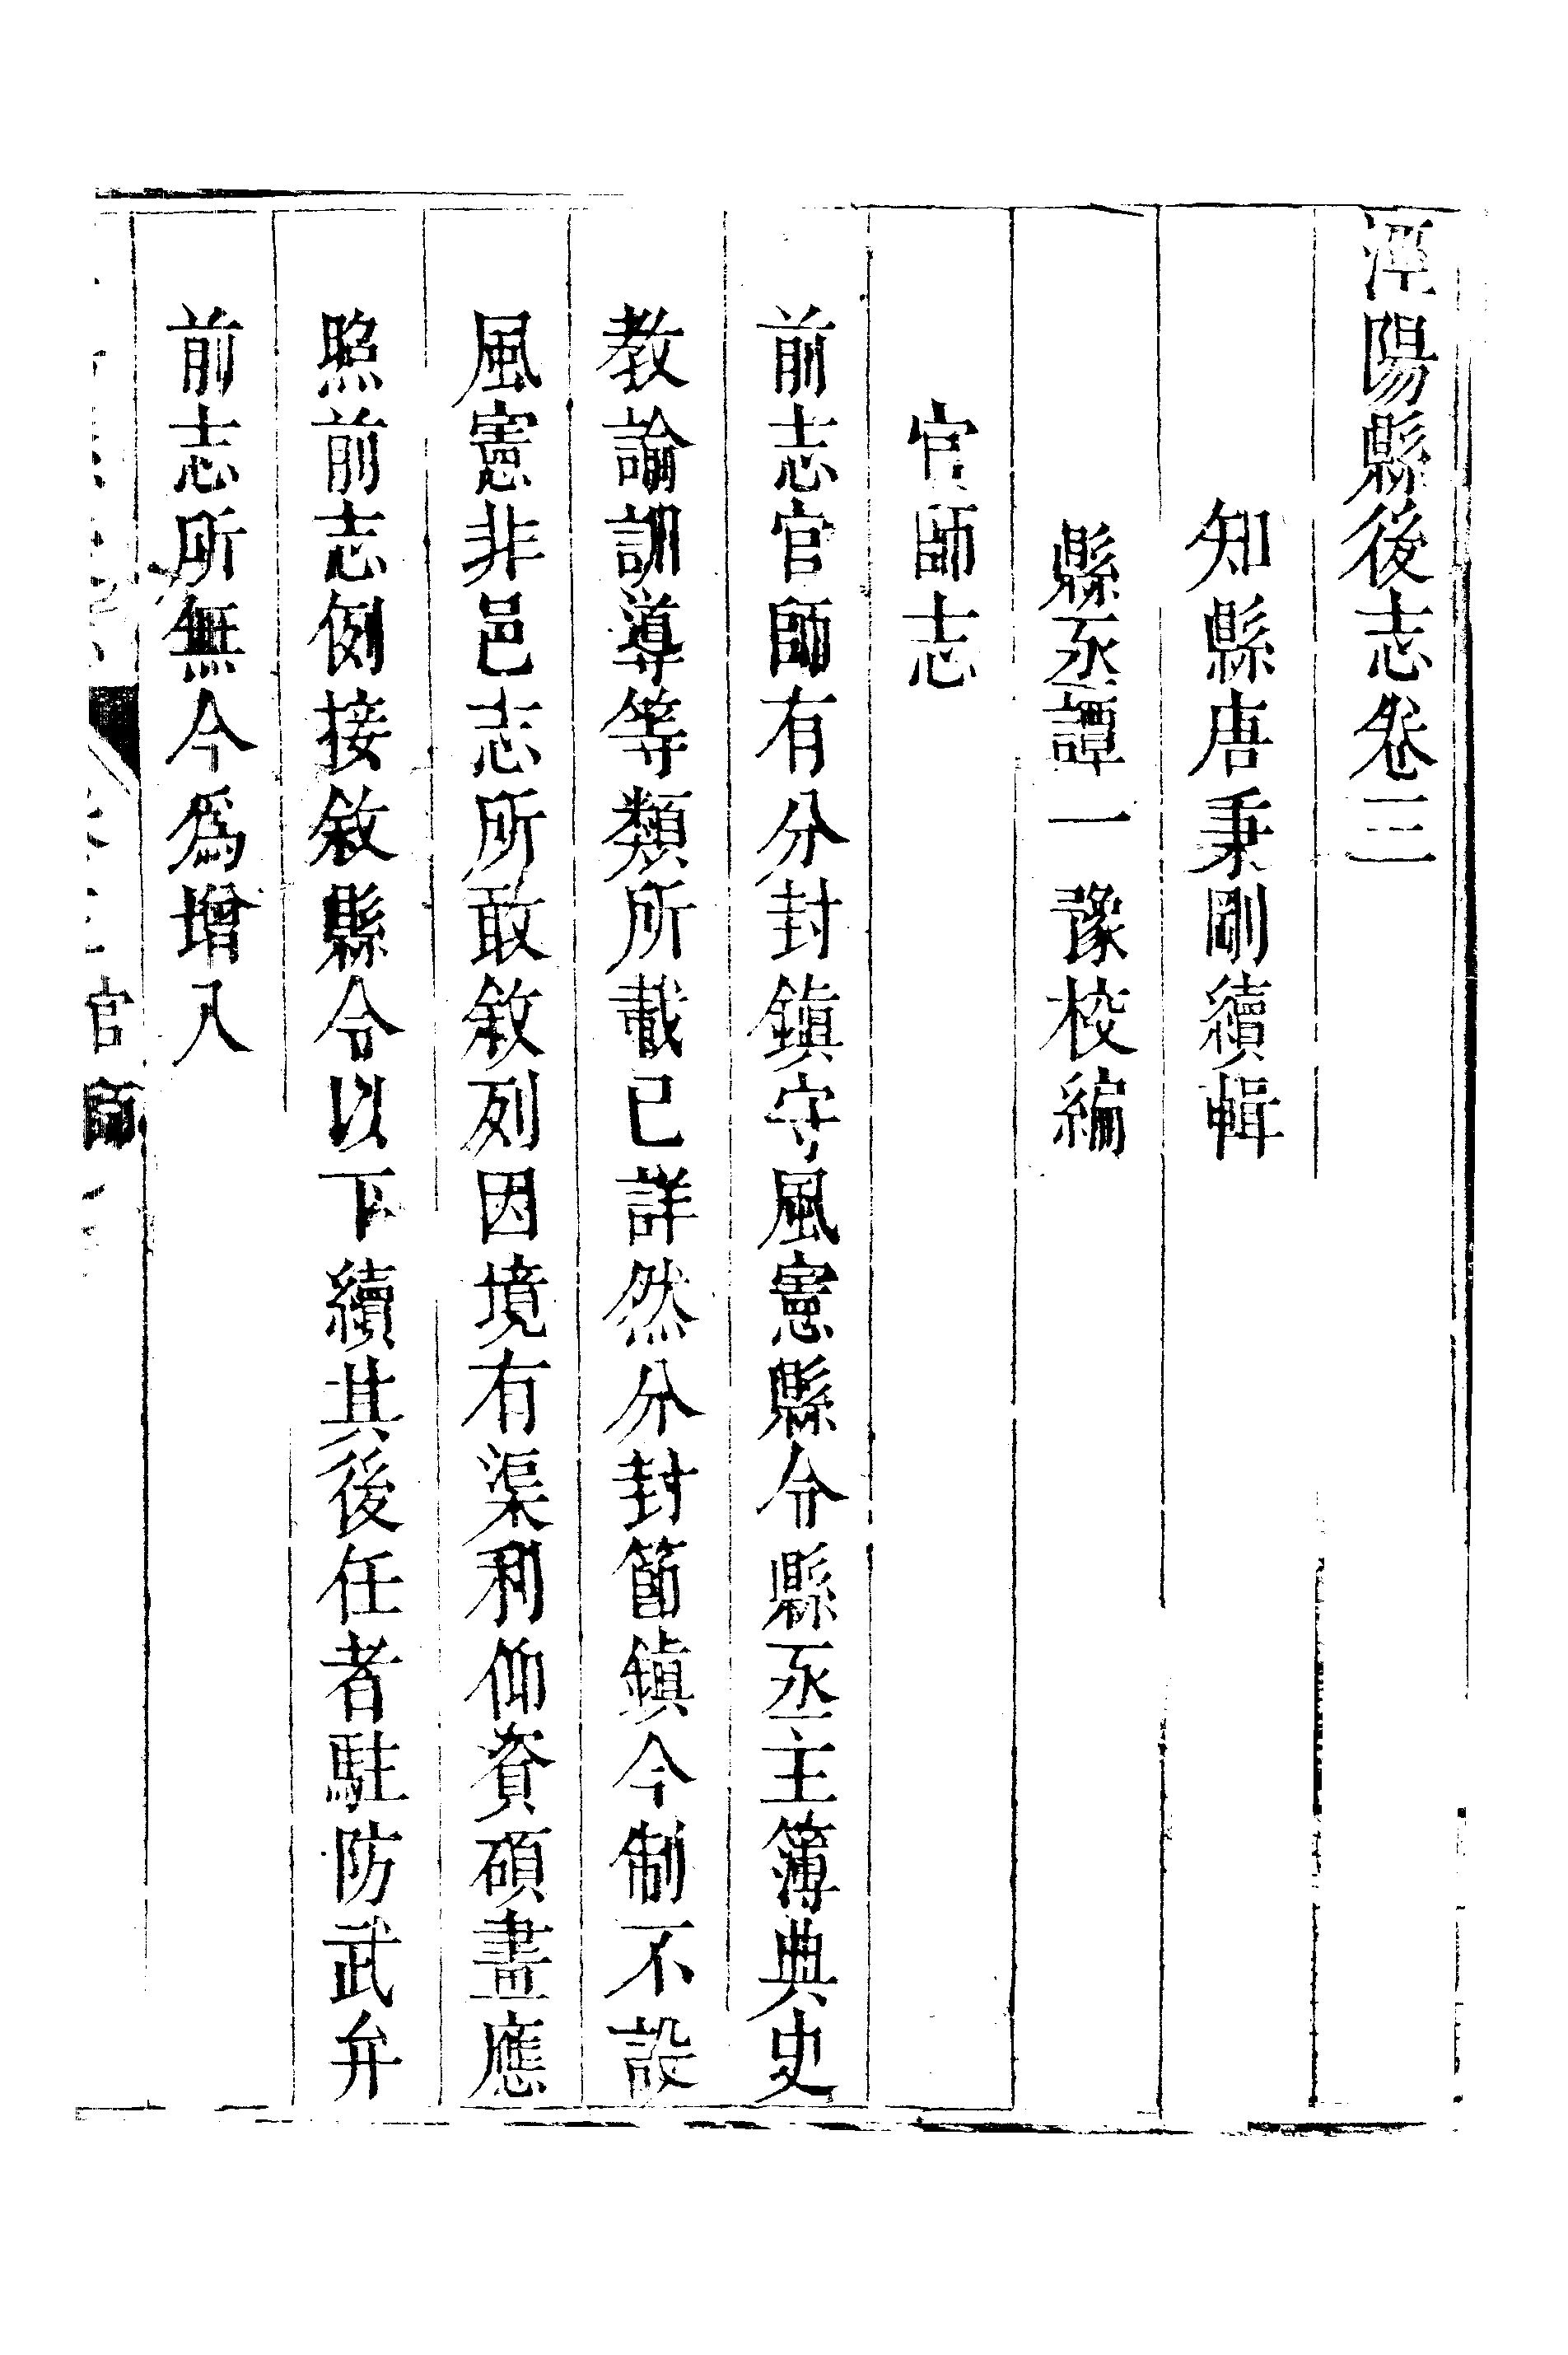 涇陽縣後志卷三
知縣唐秉剛續輯
縣丞譚一豫校編
官師志
前志官師有分封鎮守風憲縣令縣丞主簿典史
教諭訓導等類所載已詳然分封節鎮今制不設
風憲非邑志所敢敘列因境有渠利仰資碩畫應
照前志例接敘縣令以下續其後任者駐防武弁
前志所無今為增入
官師